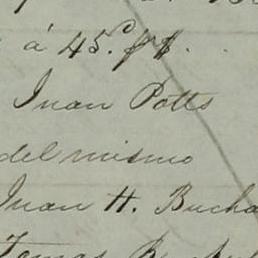 á 45.
Juan Potts
del mismo
Juan H. Bucha
Tomas